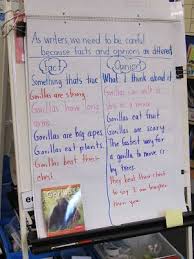 As writers, we need to be careful
because facts and opinions are different
Fact
Opinion
Something thats true
What I think about it
Gorillas are strong.
Gorillas have long
arms.
Gorillas are big apes.
Gorillas eat plants.
Gorillas beat their
chest.
Gorillas can walk
Gorillas eat fruit
Gorillas are scary.
The fastest way for
a gorilla to move is
by trees.
They beat their chest
to say I am tougher
than you.